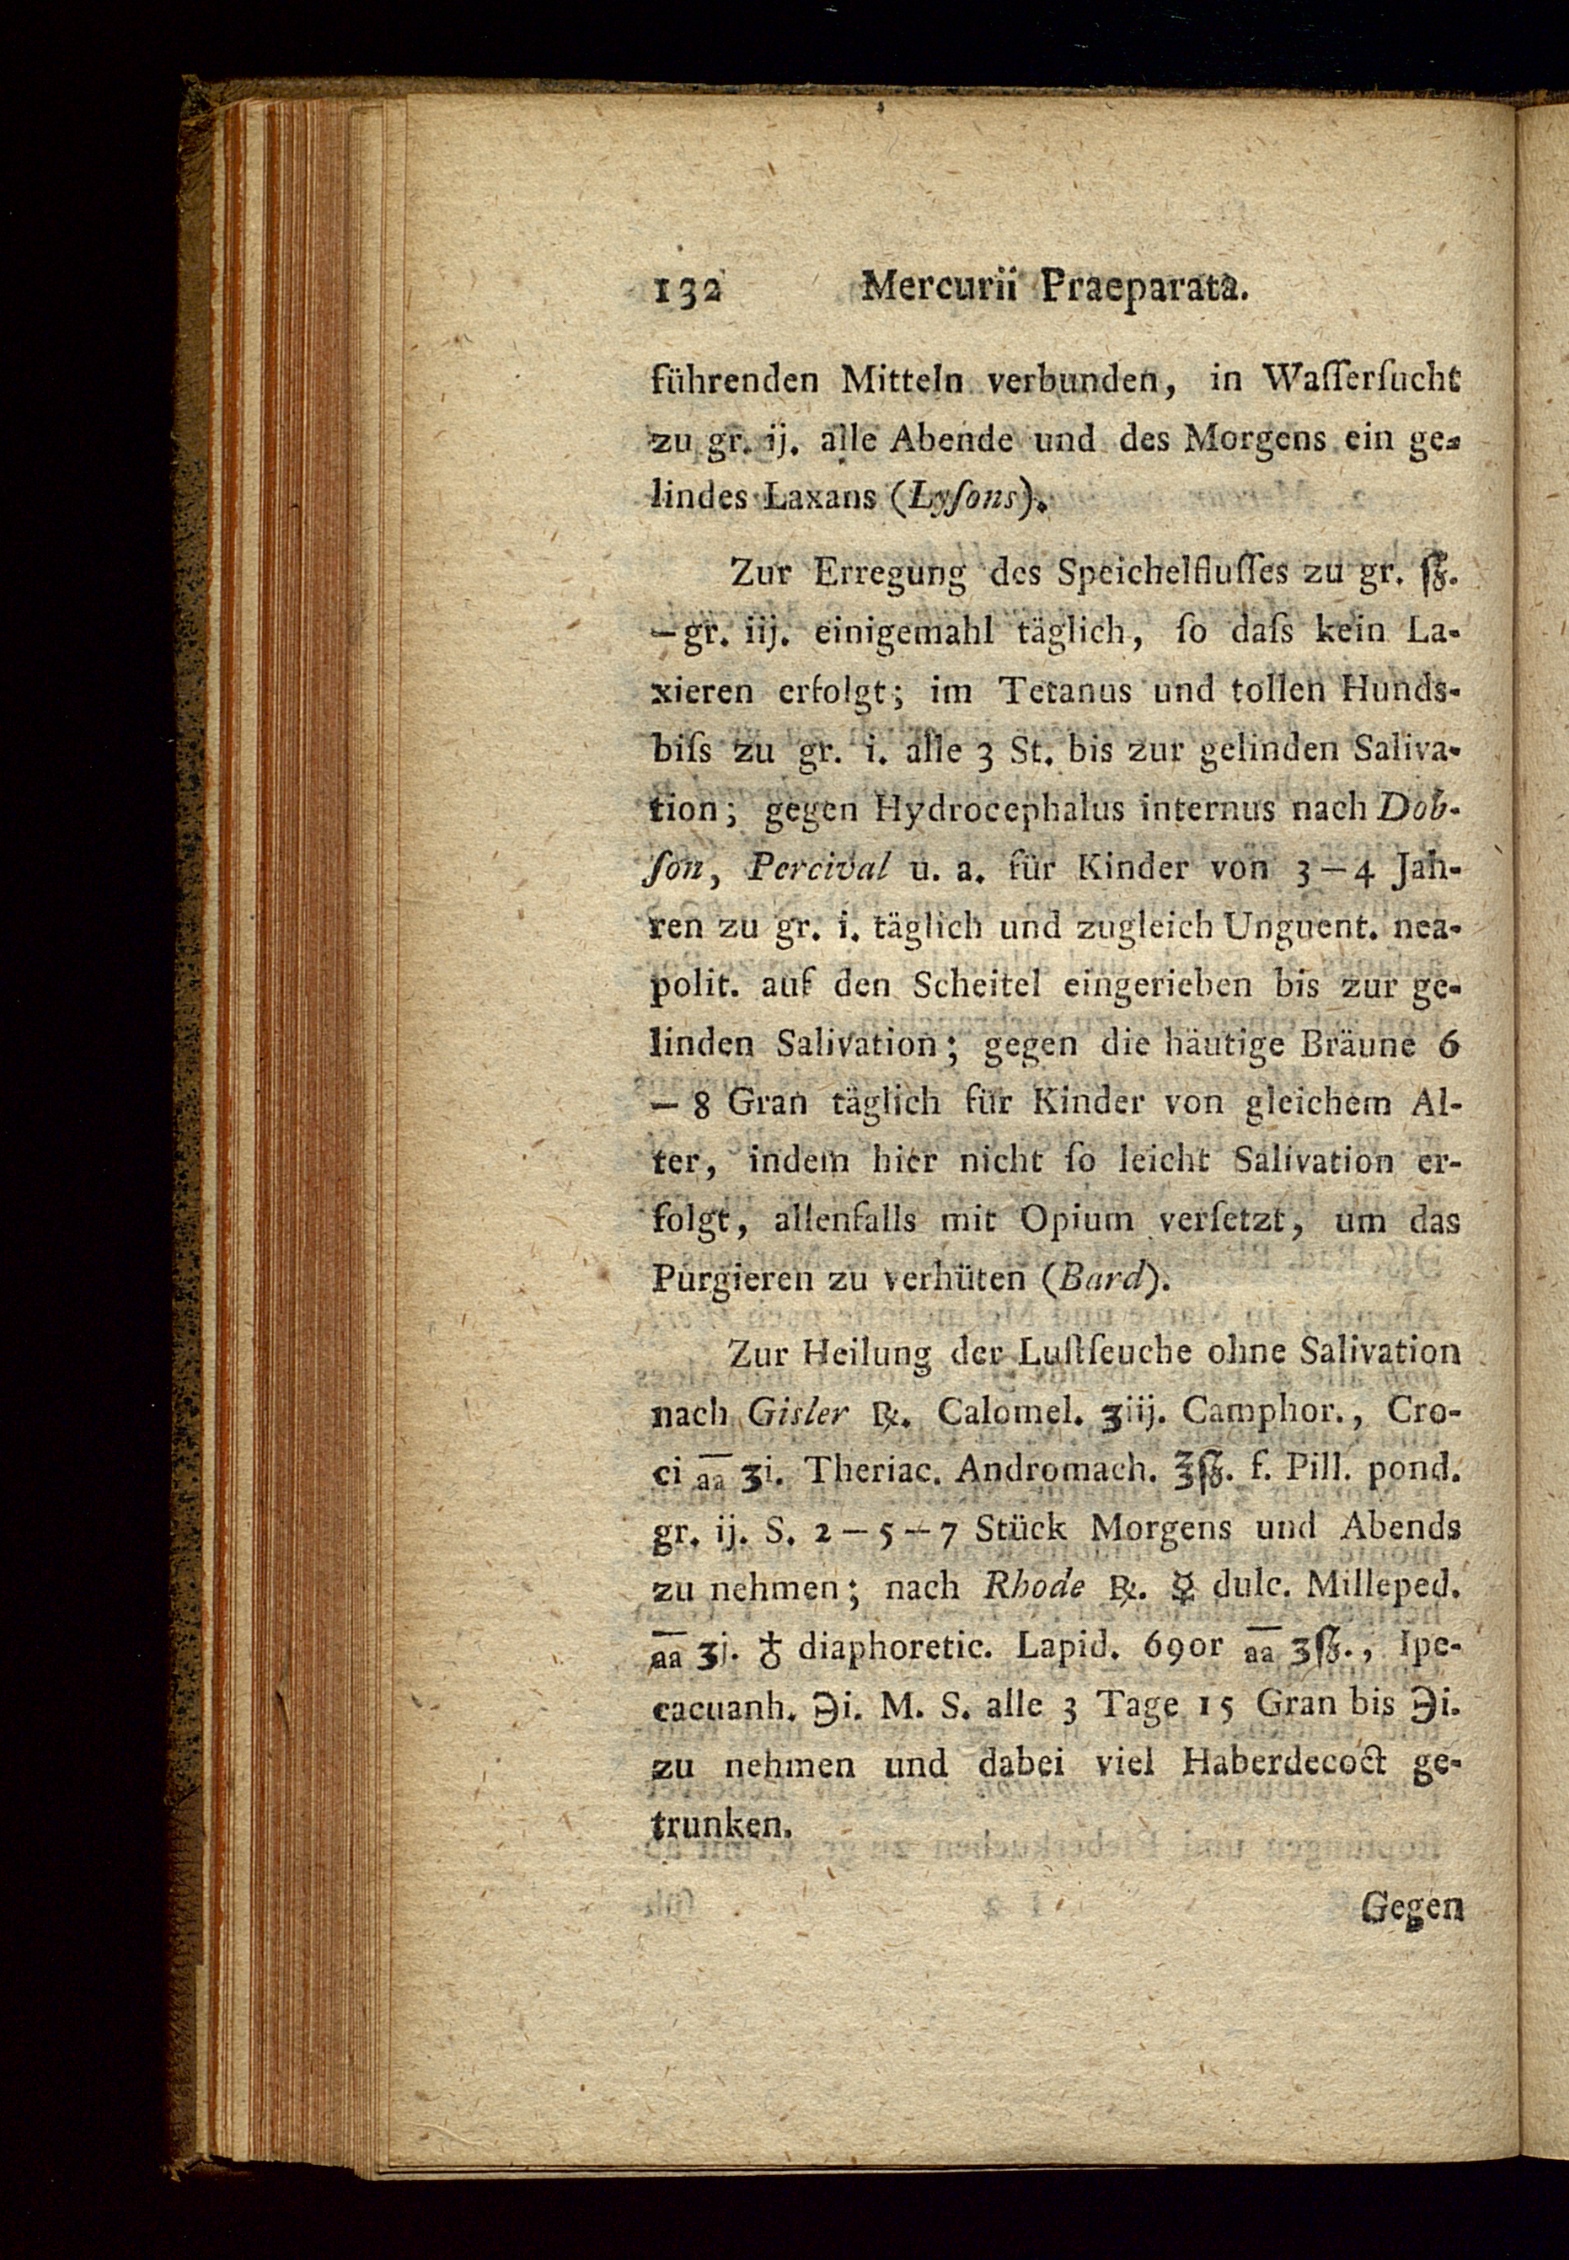 132 Mercurii Praeparata.
führenden Mitteln verbunden, in Waſſerſucht
zu gr. ij. alle Abende und des Morgens ein ge-
lindes Laxans (Lyſons).
Zur Erregung des Speichelfluſſes zu gr. ſʒ.
— gr. iij. einigemahl täglich, ſo daſs kein La-
xieren erfolgt; im Tetanus und tollen Hunds-
biſs zu gr. i. alle 3 St. bis zur gelinden Saliva-
tion; gegen Hydrocephalus internus nach Dob-
ſon, Percival u. a. für Kinder von 3 — 4 Jah-
ren zu gr. i. täglich und zugleich Unguent. nea-
polit. auf den Scheitel eingerieben bis zur ge-
linden Salivation; gegen die häutige Bräune 6
— 8 Gran täglich für Kinder von gleichem Al-
ter, indem hier nicht ſo leicht Salivation er-
folgt, allenfalls mit Opium verſetzt, um das
Purgieren zu verhüten (Bard).
Zur Heilung der Luſtſeuche ohne Salivation
nach Gisler ℞. Calomel. ʒiij. Camphor., Cro-
ci a̅a̅ ʒi. Theriac. Andromach. ℥ſʒ. f. Pill. pond.
gr. ij. S. 2 — 5 — 7 Stück Morgens und Abends
zu nehmen; nach Rhode ℞. ☿ dulc. Milleped.
a̅a̅ ʒj. ♁ diaphoretic. Lapid. 69or a̅a̅ ʒſʒ., Ipe-
cacuanh. ℈i. M. S. alle 3 Tage 15 Gran bis ℈i.
zu nehmen und dabei viel Haberdecoct ge-
trunken.
Gegen